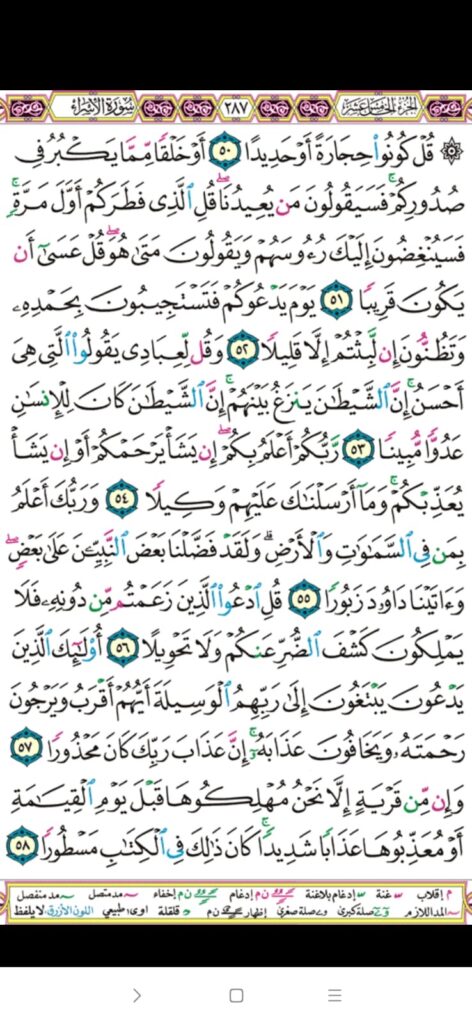 سورة الإسراء ٢٨٧ الجزء الخامس عشر
۞ قُلْ كُونُوا۟ حِجَارَةً أَوْ حَدِيدًا ٥٠ أَوْ خَلْقًا مِّمَّا يَكْبُرُ فِى
صُدُورِكُمْ ۚ فَسَيَقُولُونَ مَن يُعِيدُنَا ۖ قُلِ ٱلَّذِى فَطَرَكُمْ أَوَّلَ مَرَّةٍ ۚ
فَسَيُنْغِضُونَ إِلَيْكَ رُءُوسَهُمْ وَيَقُولُونَ مَتَىٰ هُوَ ۖ قُلْ عَسَىٰٓ أَن
يَكُونَ قَرِيبًا ٥١ يَوْمَ يَدْعُوكُمْ فَتَسْتَجِيبُونَ بِحَمْدِهِۦ
وَتَظُنُّونَ إِن لَّبِثْتُمْ إِلَّا قَلِيلًا ٥٢ وَقُل لِّعِبَادِى يَقُولُوا۟ ٱلَّتِى هِىَ
أَحْسَنُ ۚ إِنَّ ٱلشَّيْطَٰنَ يَنزَغُ بَيْنَهُمْ ۚ إِنَّ ٱلشَّيْطَٰنَ كَانَ لِلْإِنسَٰنِ
عَدُوًّا مُّبِينًا ٥٣ رَّبُّكُمْ أَعْلَمُ بِكُمْ ۖ إِن يَشَأْ يَرْحَمْكُمْ أَوْ إِن يَشَأْ
يُعَذِّبْكُمْ ۚ وَمَآ أَرْسَلْنَٰكَ عَلَيْهِمْ وَكِيلًا ٥٤ وَرَبُّكَ أَعْلَمُ
بِمَن فِى ٱلسَّمَٰوَٰتِ وَٱلْأَرْضِ ۗ وَلَقَدْ فَضَّلْنَا بَعْضَ ٱلنَّبِيِّـۧنَ عَلَىٰ بَعْضٍ ۖ
وَءَاتَيْنَا دَاوُۥدَ زَبُورًا ٥٥ قُلِ ٱدْعُوا۟ ٱلَّذِينَ زَعَمْتُم مِّن دُونِهِۦ فَلَا
يَمْلِكُونَ كَشْفَ ٱلضُّرِّ عَنكُمْ وَلَا تَحْوِيلًا ٥٦ أُو۟لَٰٓئِكَ ٱلَّذِينَ
يَدْعُونَ يَبْتَغُونَ إِلَىٰ رَبِّهِمُ ٱلْوَسِيلَةَ أَيُّهُمْ أَقْرَبُ وَيَرْجُونَ
رَحْمَتَهُۥ وَيَخَافُونَ عَذَابَهُۥٓ ۚ إِنَّ عَذَابَ رَبِّكَ كَانَ مَحْذُورًا ٥٧
وَإِن مِّن قَرْيَةٍ إِلَّا نَحْنُ مُهْلِكُوهَا قَبْلَ يَوْمِ ٱلْقِيَٰمَةِ
أَوْ مُعَذِّبُوهَا عَذَابًا شَدِيدًا ۚ كَانَ ذَٰلِكَ فِى ٱلْكِتَٰبِ مَسْطُورًا ٥٨
م إقلاب غنة إدغام بلاغنة ن م إدغام ن م إخفاء مد متصل مد منفصل
المد اللازم صلة كبرى صلة صغرى إظهار ن م قلقلة اوى طبيعي اللون الأزرق لا يلفظ